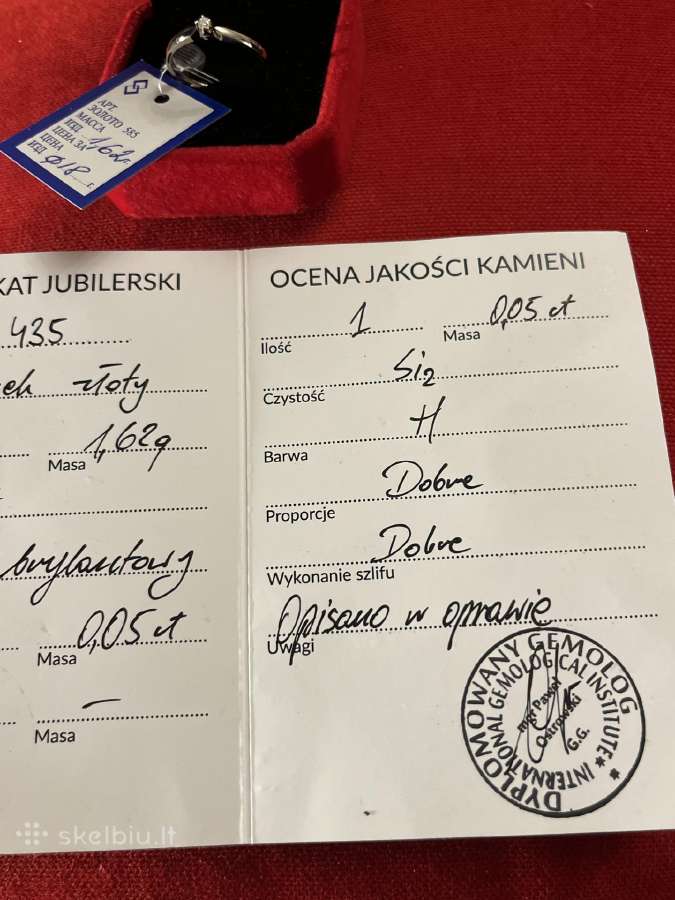 АРТ.
ЗОЛОТО 585
МАССА
ИЗД. 1,62 г.
ЦЕНА ЗА
ЦЕНА
ИЗД. Ф18 г.
KAT JUBILERSKI
435
ek złoty
1,62g
Masa
brylantowy
0,05 ct
Masa
–
Masa
OCENA JAKOŚCI KAMIENI
1 0,05 ct
Ilość Masa
Si2
Czystość
H
Barwa
Dobre
Proporcje
Dobre
Wykonanie szlifu
Opisano w oprawie
Uwagi
DYPLOMOWANY GEMOLOG
INTERNATIONAL GEMOLOGICAL INSTITUTE
mgr Paweł
Ostrowski
G.G.
skelbiu.lt